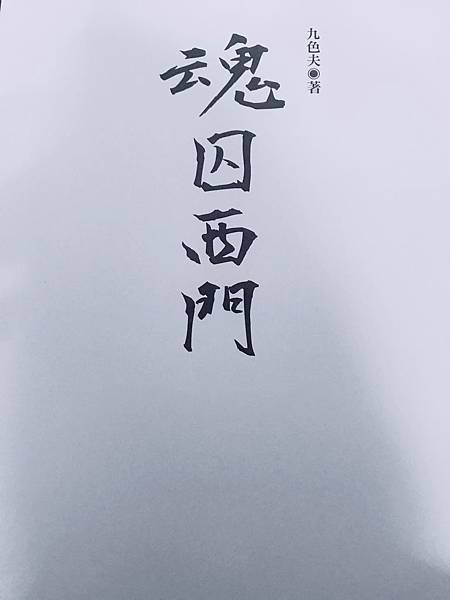 九色夫◉著
魂囚西門